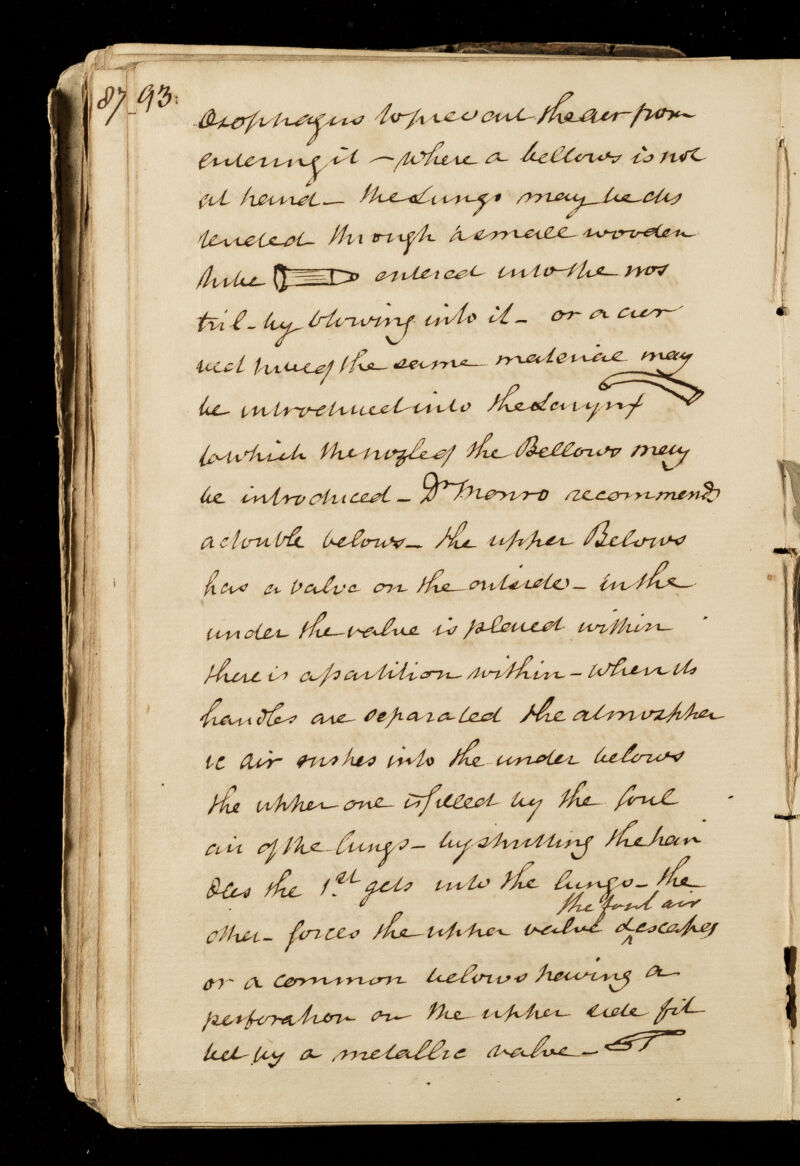 87 93.
Œsophagus to prevent the air from
entering it – where a bellows is not
at hand – the Lungs may be dis
tended through a small wooden
tube entered into the nos
tril – by blowing into it – or a cur
ved tube of the same material may
be introduced into the Larynx
to which the nozle of the Bellows may
be introduced – Dr Monro recommends
a double belows – the upper Belows
has a valve on the outside – in the
under the valve is placed within
there is a partition within – when its
handles are separated the atmospher
ic air rushes into the under belows
the upper one is filled by the foul
air of the lungs – by shutting the han
dles the 1.st gets into the lungs – the
the foul air
other – forces the upper valve & escapes
or a common belows having a
perforation on the upper side fit
ted by a metallic valve –